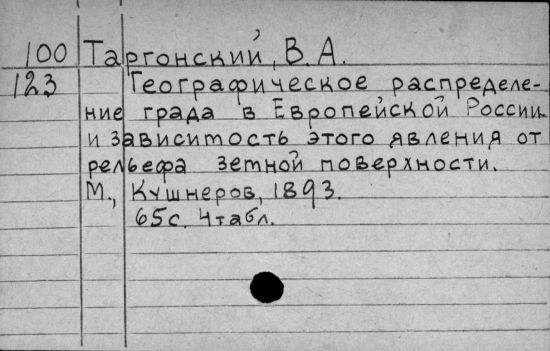 100 Таргонский, В. А.
123 Географическое распределе-
ние града в Европейской России
и зависимость этого явления от
рельефа земной поверхности.
М., Кушнеров, 1893.
65с. 4 табл.